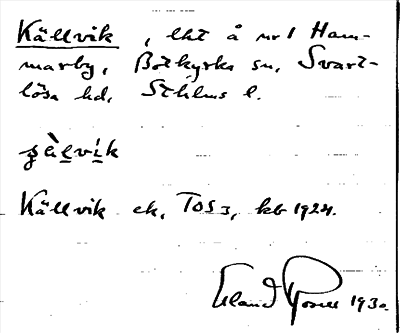 Källvik, lht å nr 1 Ham-
marby, Botkyrka sn, Svart-
lösa hd, Sthlms l.
Källvik ek, TOS3, kb 1924.
Erland Rosell 1930